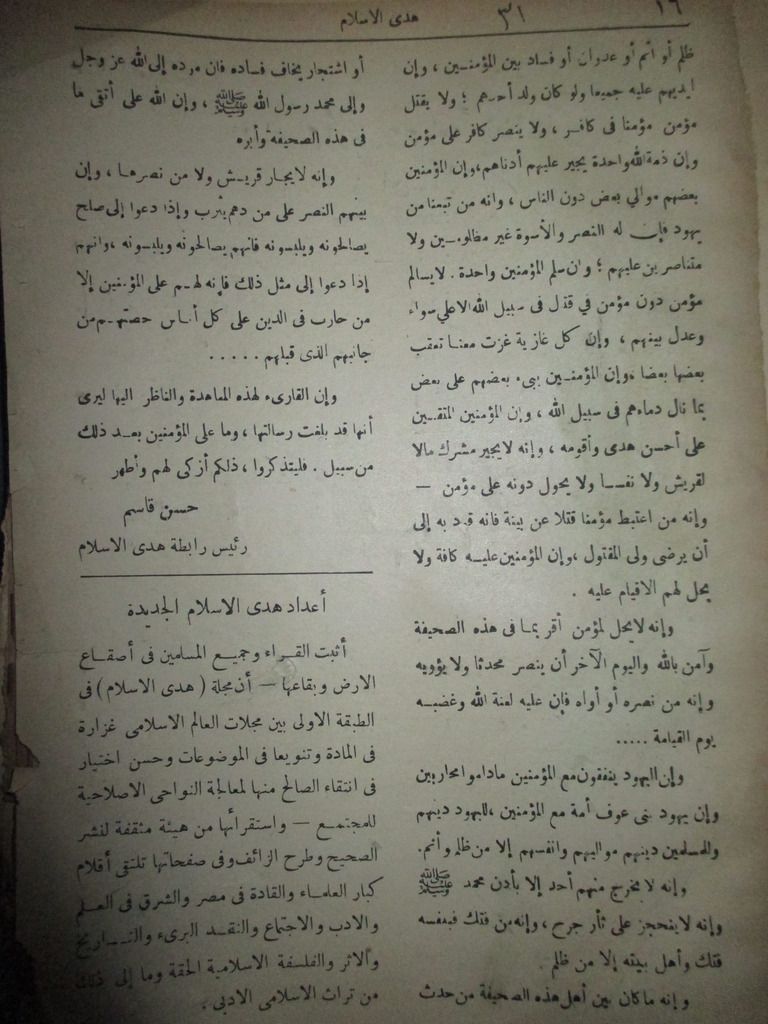 ١٦
٣١
هدى الاسلام
ظلم أو أثم أو عدوان أو فساد بين المؤمنـين ، وإن
ايديهم عليه جميعا ولو كان ولد أحدهم ؛ ولا يقتل
مؤمن مؤمنا فى كافر ، ولا ينصر كافر على مؤمن
وإن ذمة الله واحدة يجير عليهم أدناهم ،وإن المؤمنين
بعضهم موالي بعض دون الناس ، وانه من تبعنا من
يهود فإن له النصر والأسوة غير مظلومـين ولا
متناصر بن عليهم ؛ وان سلم المؤمنين واحدة . لايسالم
مؤمن دون مؤمن في قتال فى سبيل الله الاعلي سواء
وعدل بينهم ، وإن كل غازية غزت معنا تعقب
بعضها بعضا ،وإن المؤمنـين يبىء بعضهم على بعض
بما نال دماءهم فى سبيل الله ، وإن المؤمنين المتقـين
على أحسن هدى وأقومه ، وإنه لايجير مشرك مالا
لقريش ولا نفسـا ولا يحول دونه على مؤمن —
وإنه من اعتبط مؤمنا قتلا عن بينة فانه قود به إلى
أن يرضى ولى المقتول ،وإن المؤمنين عليـه كافة ولا
يحل لهم الاقيام عليه .
وإنه لايحل لمؤمن أقر بما فى هذه الصحيفة
وآمن بالله واليوم الآخر أن ينصر محدثا ولا يؤويه
و إنه من نصره أو أواه فإن عليه لعنة الله وغضبـه
يوم القيامة .....
وإن اليهود ينفقون مع المؤمنين ماداموا محاربين
وإن يهود بنى عوف أمة مع المؤمنين ،لليهود دينهم
وللمسلمين دينهم مواليهم وانفسهم إلا من ظلم وأثم.
وإنه لا يخرج منهم أحد إلا بأذن محمد ﷺ
وإنه لاينحجز على ثأر جرح ، وإنه من فتك فبنفسه
فتك وأهل بيته إلا من ظلم .
و إنه ما كان بين أهل هذه الصحيفة من حدث
أو اشتجار يخاف فساده فان مرده إلى الله عز وجل
وإلى محمد رسول الله ﷺ ، وإن الله على أتقى ما
فى هذه الصحيفة وأبره
وإنه لايجار قريـش ولا من نصرهـا ، وإن
بينهم النصر على من دهم يثرب وإذا دعوا إلى صلح
يصالحونه ويلبسونه فانهم يصالحونه ويلبسونه ،وانهم
إذا دعوا إلى مثل ذلك فإنه لهـم على المؤمنين إلا
من حارب فى الدين على كل أنـاس حصتهـم من
جانبهم الذى قبلهم .....
وإن القارىء لهذه المعاهدة والناظر اليها ليرى
أنها قد بلغت رسالتها ، وما على المؤمنين بعـد ذلك
من سبيل . فليتذكروا ، ذلكم أزكى لهم وأطهر
حسن قاسم
رئيس رابطة هدى الاسلام
أعداد هدى الاسلام الجديدة
أثبت القـراء وجميـع المسلمين فى أصقـاع
الارض وبقاعها — أن مجلة ( هدى الاسلام ) فى
الطبقة الاولى بين مجلات العالم الاسلامى غزارة
فى المادة وتنويعا فى الموضوعات وحسن اختيار
فى انتقاء الصالح منها لمعالجة النواحى الاصلاحية
للمجتمـع — واستقرأنها من هيئة مثقفة لنشر
الصحيح وطرح الزائف وفى صفحاتها تلتقى أقلام
كبار العلمـاء والقادة فى مصر والشرق فى العـلم
والادب والاجتماع والنقـد البرىء والتـاريخ
والاثر والفلسفة الاسلامية الحقة وما إلى ذلك
من تراث الاسلامى الادبى .